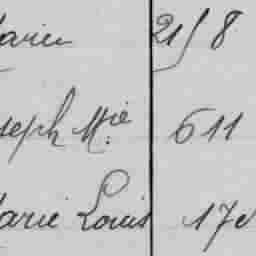 arien 21/8
seph Mie 611
arie Louis 17